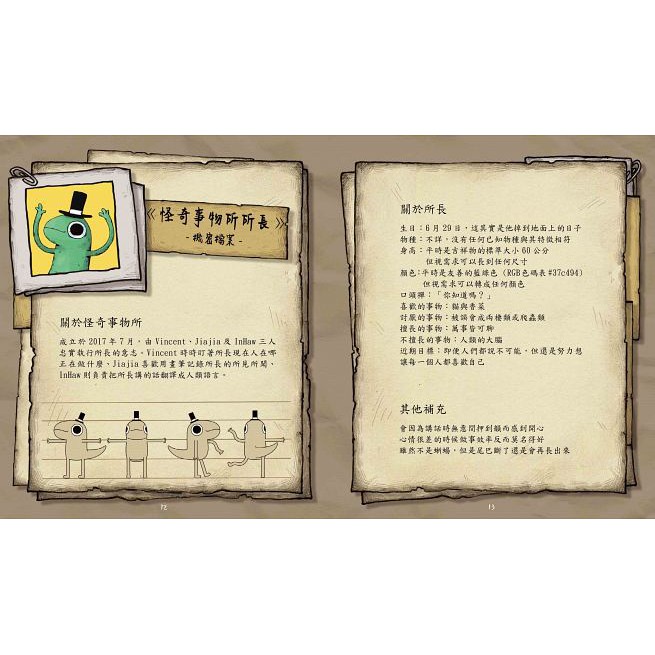 《怪奇事物所所長》
- 機密檔案 -
關於怪奇事物所
成立於 2017 年 7 月，由 Vincent、Jiajia 及 InHaw 三人
忠實執行所長的意志。Vincent 時時盯著所長現在人在哪
正在做什麼，Jiajia 喜歡用畫筆記錄所長的所見所聞、
InHaw 則負責把所長講的話翻譯成人類語言。
12
關於所長
生日：6 月 29 日，這其實是他掉到地面上的日子
物種：不詳，沒有任何已知物種與其特徵相符
身高：平時是吉祥物的標準大小 60 公分
但視需求可以長到任何尺寸
顏色：平時是友善的藍綠色 (RGB色碼表#37c494)
但視需求可以轉成任何顏色
口頭禪：「你知道嗎？」
喜歡的事物：貓與香菜
討厭的事物：被誤會成兩棲類或爬蟲類
擅長的事物：萬事皆可聊
不擅長的事物：人類的大腦
近期目標：即使人們都說不可能，但還是努力想
讓每一個人都喜歡自己
其他補充
會因為講話時無意間押到韻而感到開心
心情很差的時候做事效率反而莫名得好
雖然不是蜥蜴，但是尾巴斷了還是會再長出來
13